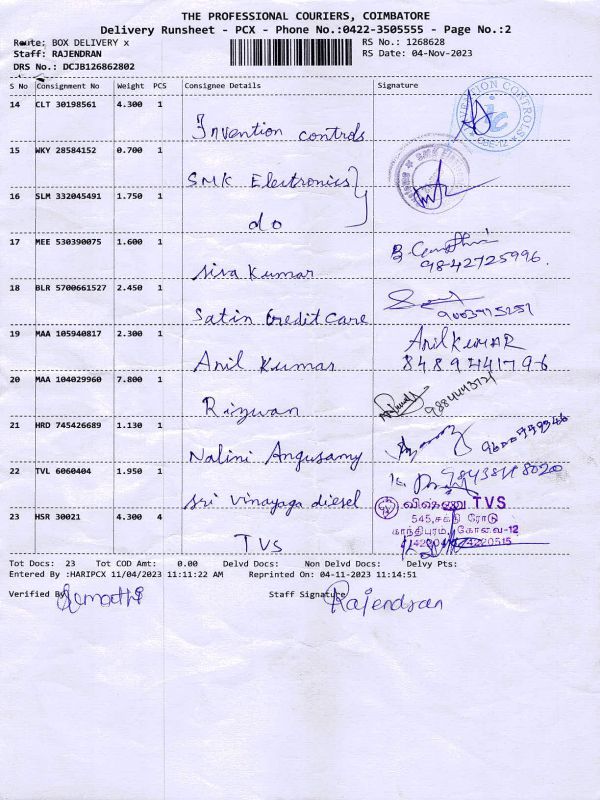 THE PROFESSIONAL COURIERS, COIMBATORE
Delivery Runsheet - PCX - Phone No.:0422-3505555 - Page No.:2
Route: BOX DELIVERY x RS No.: 1268628
Staff: RAJENDRAN RS Date: 04-Nov-2023
DRS No.: DCJB126862802
S No Consignment No Weight PCS Consignee Details Signature
14 CLT 30198561 4.300 1
Invention controls
15 WKY 28584152 0.700 1
SMK Electronics
16 SLM 332045491 1.750 1
do
17 MEE 530390075 1.600 1
9842725996.
Siva Kumar
18 BLR 5700661527 2.450 1
Satin Credit Care
19 MAA 105940817 2.300 1 Anil KUMAR
Anil Kumar 8489441796
20 MAA 104029960 7.800 1
Rizwan
21 HRD 745426689 1.130 1
Nalini Angusamy
22 TVL 6060404 1.950 1
Sri Vinayaga diesel
TVS
545,சக்தி ரோடு
23 HSR 30021 4.300 4
காந்திபுரம், கோவை-12
TVS
Tot Docs: 23 Tot COD Amt: 0.00 Delvd Docs: Non Delvd Docs: Delvy Pts:
Entered By :HARIPCX 11/04/2023 11:11:22 AM Reprinted On : 04-11-2023 11:14:51
Verified By Staff Signature Rajendran